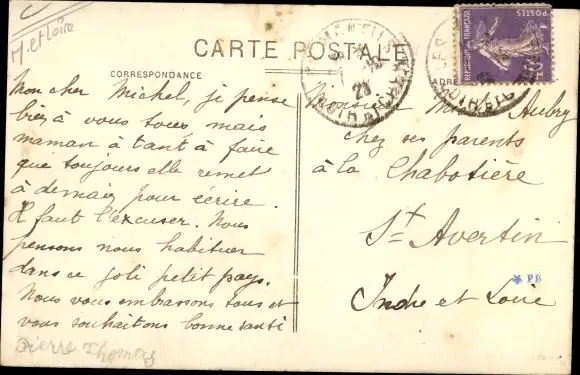 M. et Loire
CARTE POSTALE
CORRESPONDANCE
Mon cher Michel, je pense
bien à vous tous mais
maman à tant à faire
que toujours elle remet
à demain pour écrire.
Il faut l'excuser. Nous
pensons nous habituer
dans ce joli petit pays.
Nous vous embrassons tous et
vous souhaitons bonne santé
Pierre Thomas
Monsieur Aubry
chez ses parents
à la Chabotière
St Avertin
Indre et Loire
FB